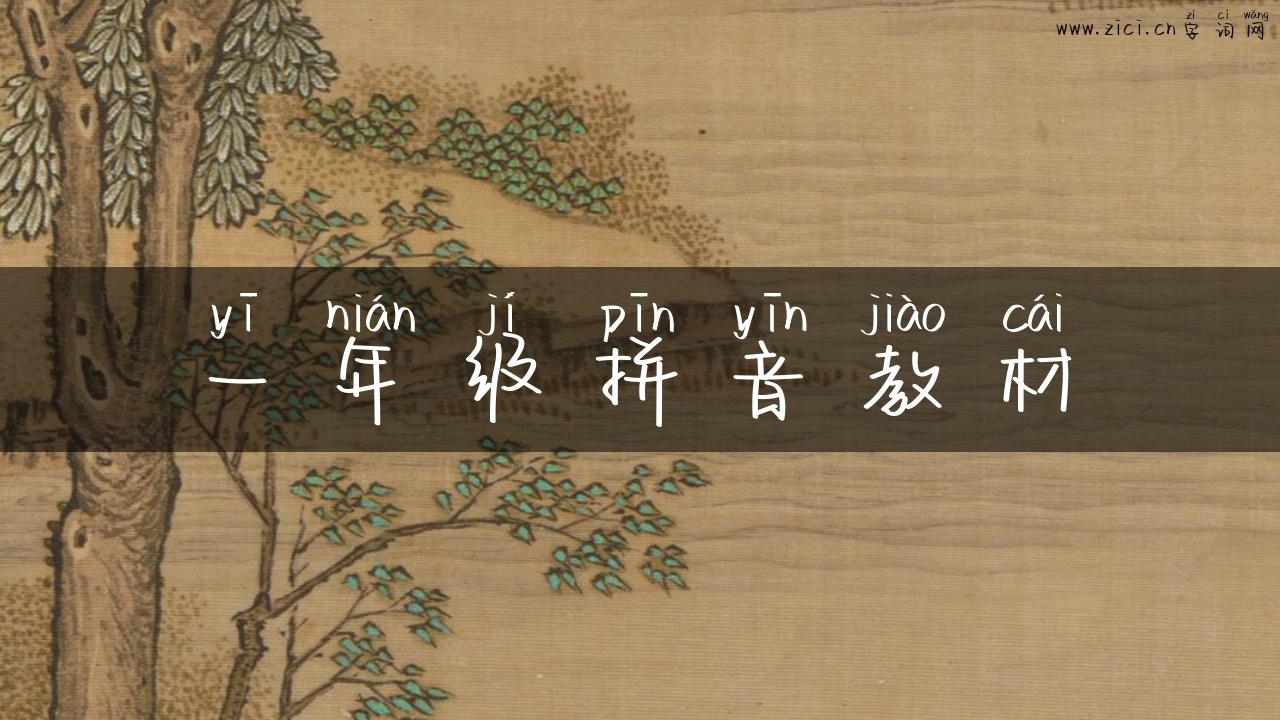 zì cí wǎng
www.zici.cn 字词网
yī nián jí pīn yīn jiào cái
一年级拼音教材